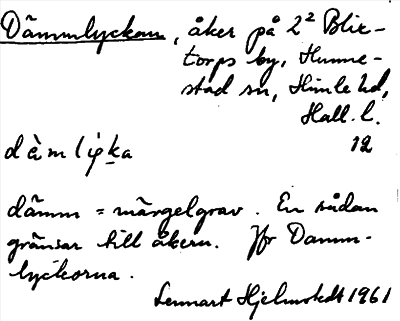 Dämmlyckan, åker på 2² Blix-
torps by, Hunne-
stad sn, Himle hd,
Hall. l.
12
dämm = märgelgrav. En sådan
gränsar till åkern. Jfr Damm-
lyckorna.
Lennart Hjelmstedt 1961